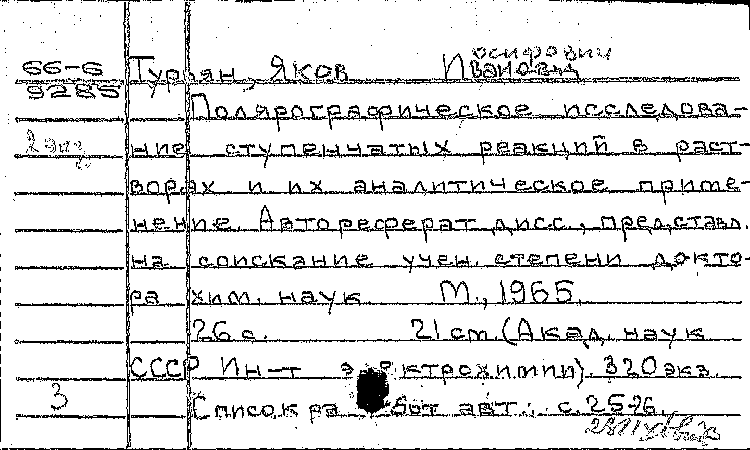 осифович
66-6 Турьян, Яков Иванович
9285
Полярографическое исследова-
2 экз ние ступенчатых реакций в раст-
ворах и их аналитическое приме-
нение. Автореферат дисс., представл.
на соискание учен. степени докто-
ра хим. наук М., 1965.
26 с. 21 см. (Акад. наук
СССР Ин-т электрохимии). 320 экз.
3 Список работ авт.: с. 25-26.